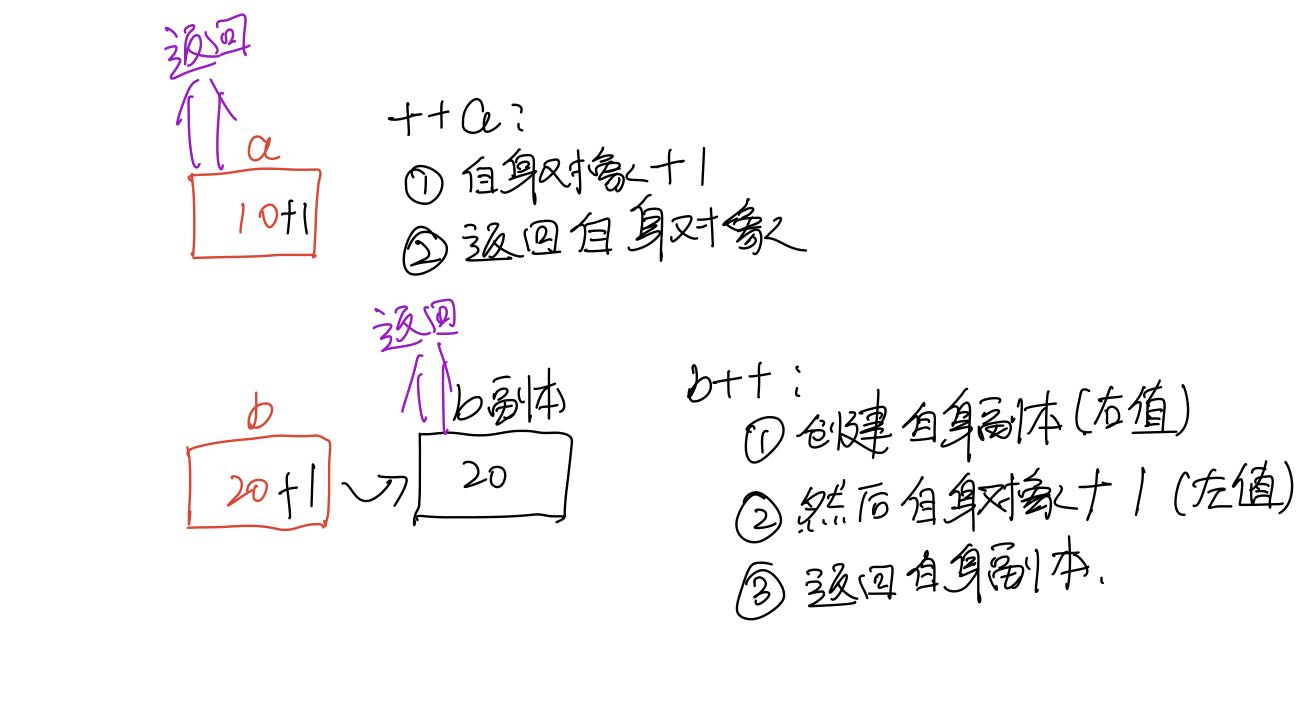 返回
a
10+1
++a:
① 自身对象+1
② 返回自身对象
返回
b
20+1
b副本
20
b++:
① 创建自身副本(右值)
② 然后自身对象+1(左值)
③ 返回自身副本.